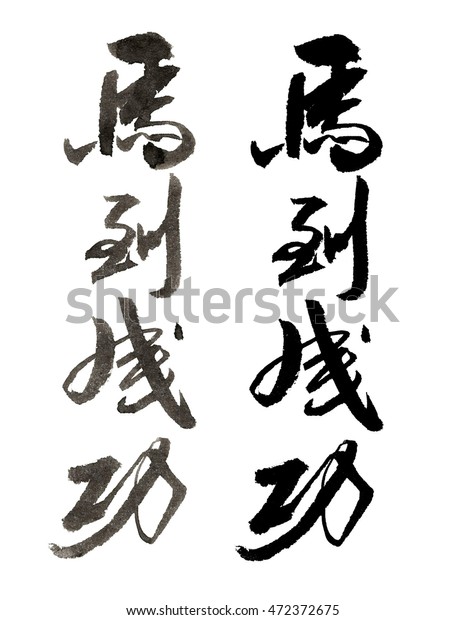 馬到成功
馬到成功
shutterstock
www.shutterstock.com · 472372675